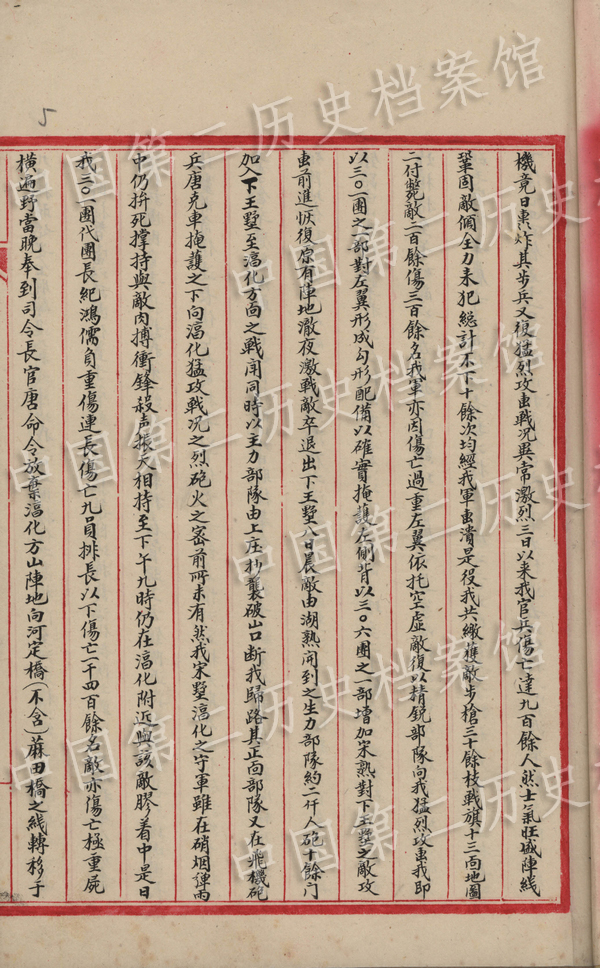 機竟日轟炸其步兵又復猛烈攻击戰况異常激烈三日以來我官兵傷亡達九百餘人然士氣旺盛陣线
鞏固敵傾全力来犯總計不下十餘次均經我軍击潰是役我共繳獲敵步槍三十餘枝戰旗十三面地圖
二付斃敵二百餘傷三百餘名我軍亦因傷亡過重左翼依托空虛敵復以精銳部隊向我猛烈攻击我即
以三〇一團之一部對左翼形成勾形配備以確實掩護左側背以三〇六團之一部增加宋熟對下王墅之敵攻
击前進恢復原有陣地澈夜激戰敵卒退出下王墅八日晨敵由湖熟開到之生力部隊約二仟人砲十餘门
加入下王墅至湻化方面之戰鬥同時以主力部隊由上庄抄襲破山口断我歸路其正面部隊又在飛機砲
兵唐克車掩護之下向湻化猛攻戰况之烈砲火之密前所未有然我宋墅湻化之守軍雖在硝烟弹雨
中仍拚死撑持與敵肉搏衝鋒殺声振天相持至下午九時仍在湻化附近與該敵膠着中是日
我三〇一團代團長紀鴻儒負重傷連長傷亡九員排長以下傷亡一千四百餘名敵亦傷亡極重屍
橫遍野當晚奉到司令長官唐命令放棄湻化方山陣地向河定橋（不含）蔴田橋之线轉移于
5
中国第二历史档案馆
中国第二历史档案馆
中国第二历史档案馆
中国第二历史档案馆